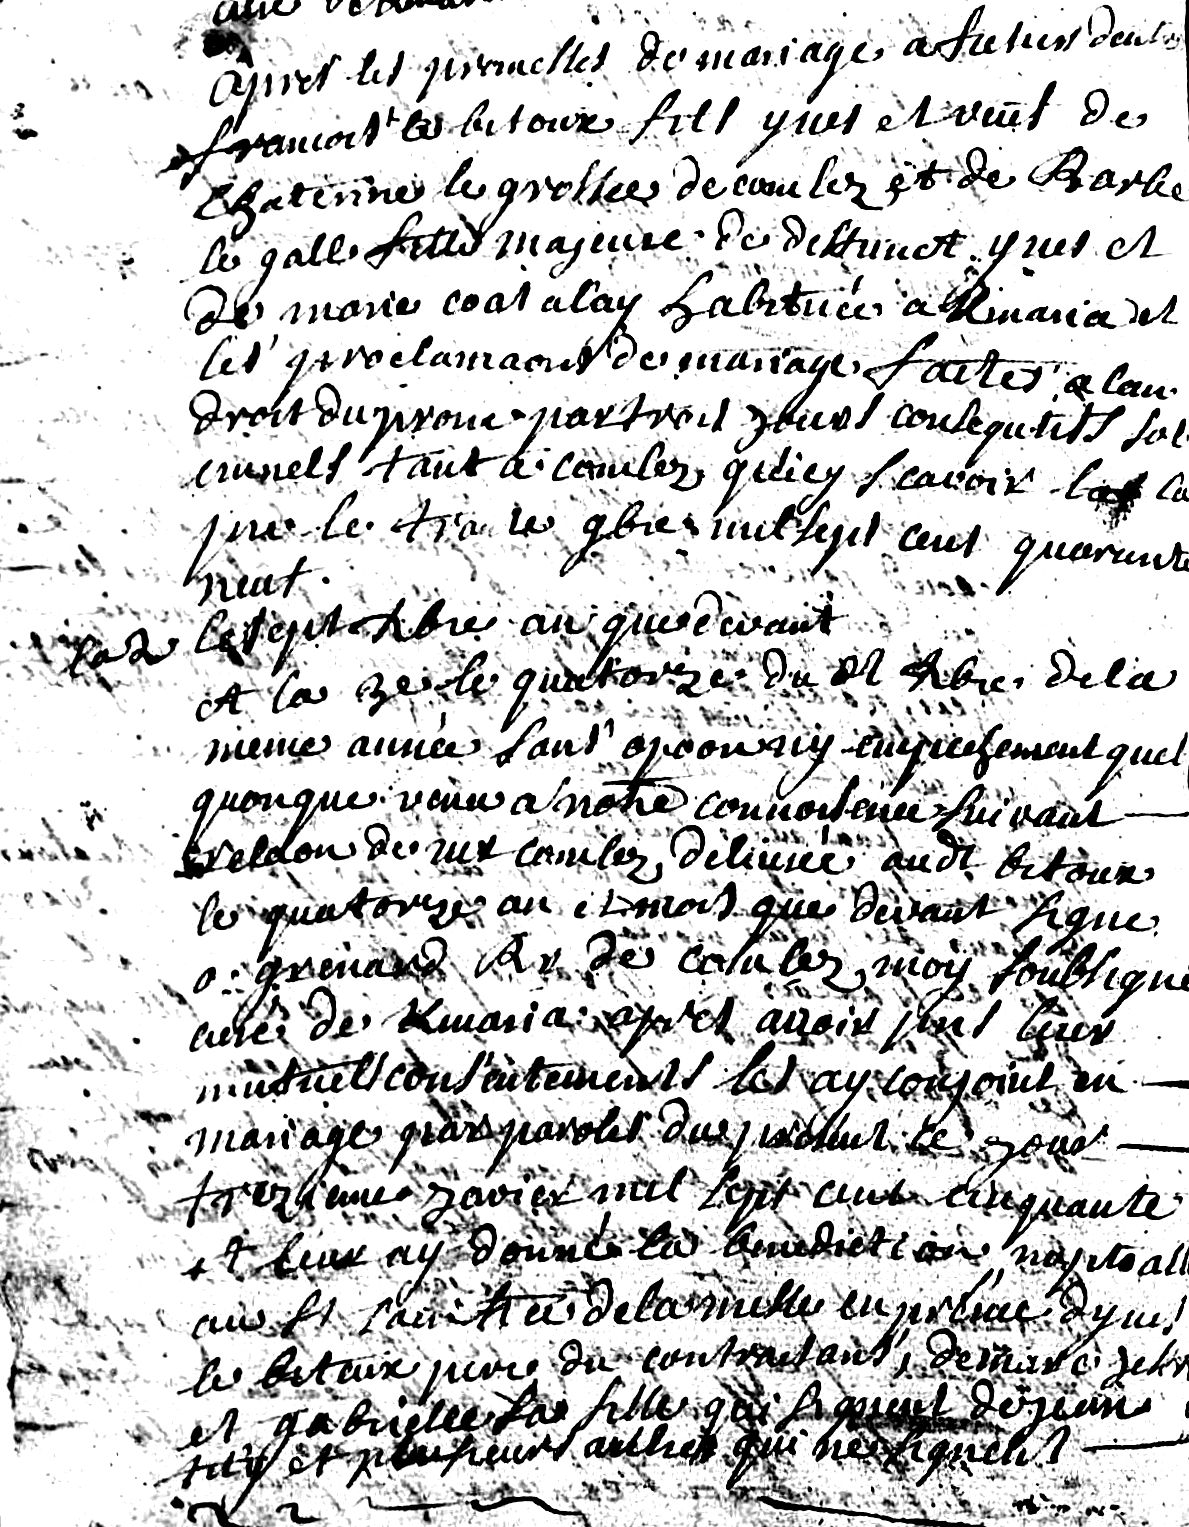 Apres les promesses de mariage a futur dentre
francois le bitoux fils yves et veuf de
Chaterine le grossec de camlez et de Barbe
le gall fille majeure de deffunct yves et
de marie coatalay habituée a Kmaria et
les proclamaons de mariage faites a lan
droit du prone par trois jours consequtifs sol
emnels tant a camlez quicy scavoir la
pre le trante 9bre mil sept cent quarante
neuf.
la 2 le sept Xbre an que devant
et la 3e le quatorze du dt Xbre de la
meme année sans opoon ny empechement quel
quonque venu a notre connoissence suivant
relaon de mr camlez delivrée audt bitoux
le quatorze an et mois que devant signe
o: grenard Rr de camlez, moy soubsigne
curé de Kmaria apres avoir pris leur
mutuels consentements les ay conjoint en
mariage par paroles du present ce jour
trezieme janvier mil sept cent cinquante
et leur ay donné la benediction nuptialle
au st sacrifice de la messe en presence dyves
le bitoux pere du contractant, de marc
et gabrielle sa fille qui signent de jean
et plusieurs autres qui ne signent